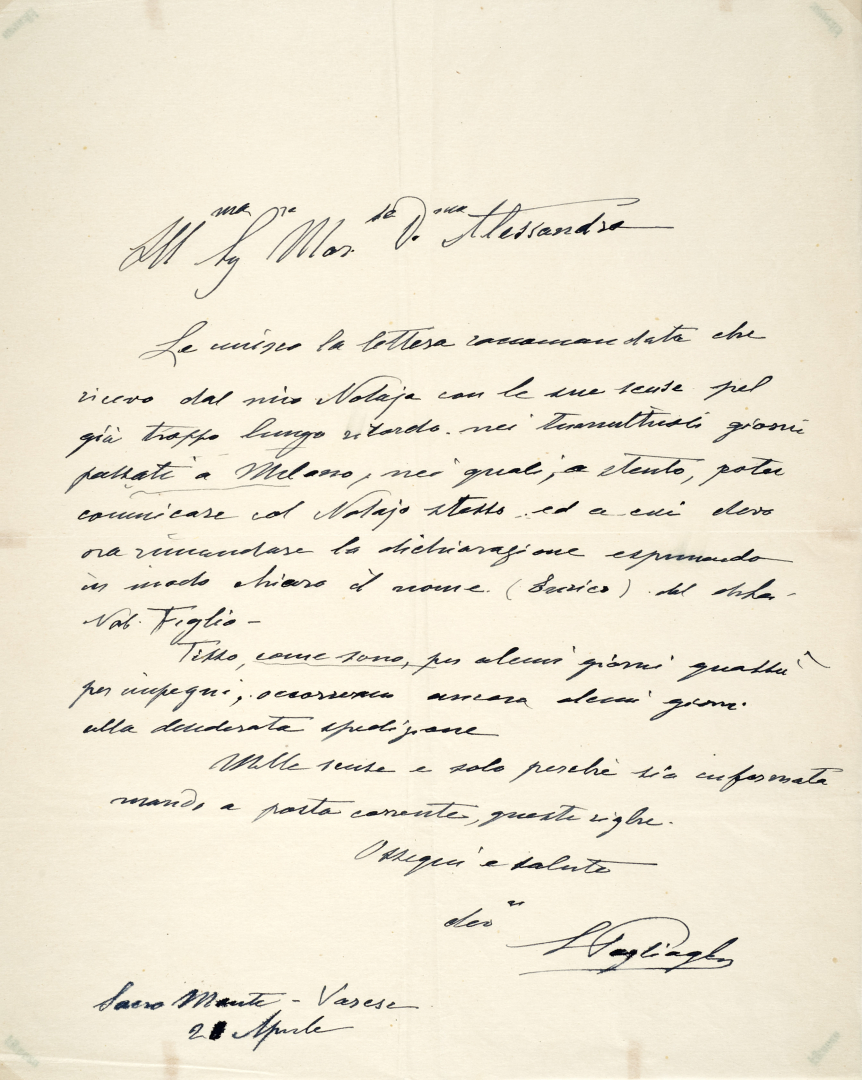 Ill.ma Sig.ra Mar.sa D.na Alessandra
Le unisco la lettera raccomandata che
ricevo dal mio Notajo con le sue scuse pel
già troppo lungo ritardo nei tumultuosi giorni
passati a Milano, nei quali, a stento, potei
comunicare col Notajo stesso ed a cui devo
ora rimandare la dichiarazione esprimendo
in modo chiaro il nome (Enrico) del
Nob. Figlio -
Fisso, come sono, per alcuni giorni quassù
per impegni, occorreranno ancora alcuni giorni
alla desiderata spedizione
Mille scuse e solo perchè sia informata
mando a posta corrente, queste righe.
Ossequi e saluti
dev.
L Pogliaghi
Sacro Monte - Varese
Aprile